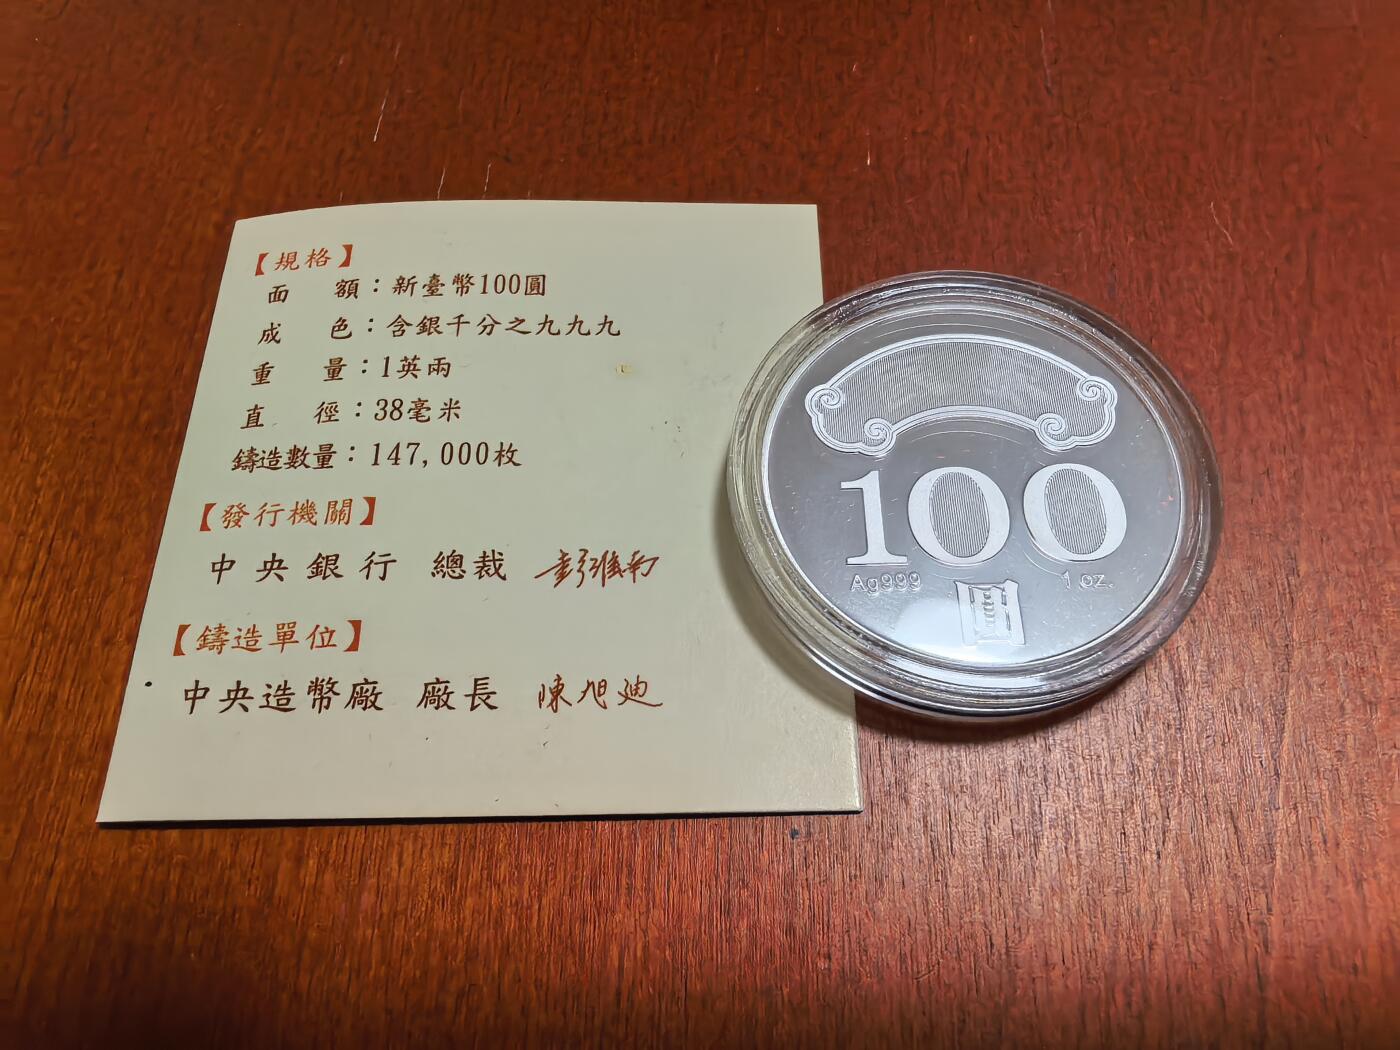 【規格】
面 額：新臺幣100圓
成 色：含銀千分之九九九
重 量：1英兩
直 徑：38毫米
鑄造數量：147,000枚
【發行機關】
中央銀行 總裁 彭淮南
【鑄造單位】
中央造幣廠 廠長 陳旭迪
100
Ag999
1 oz.
圓